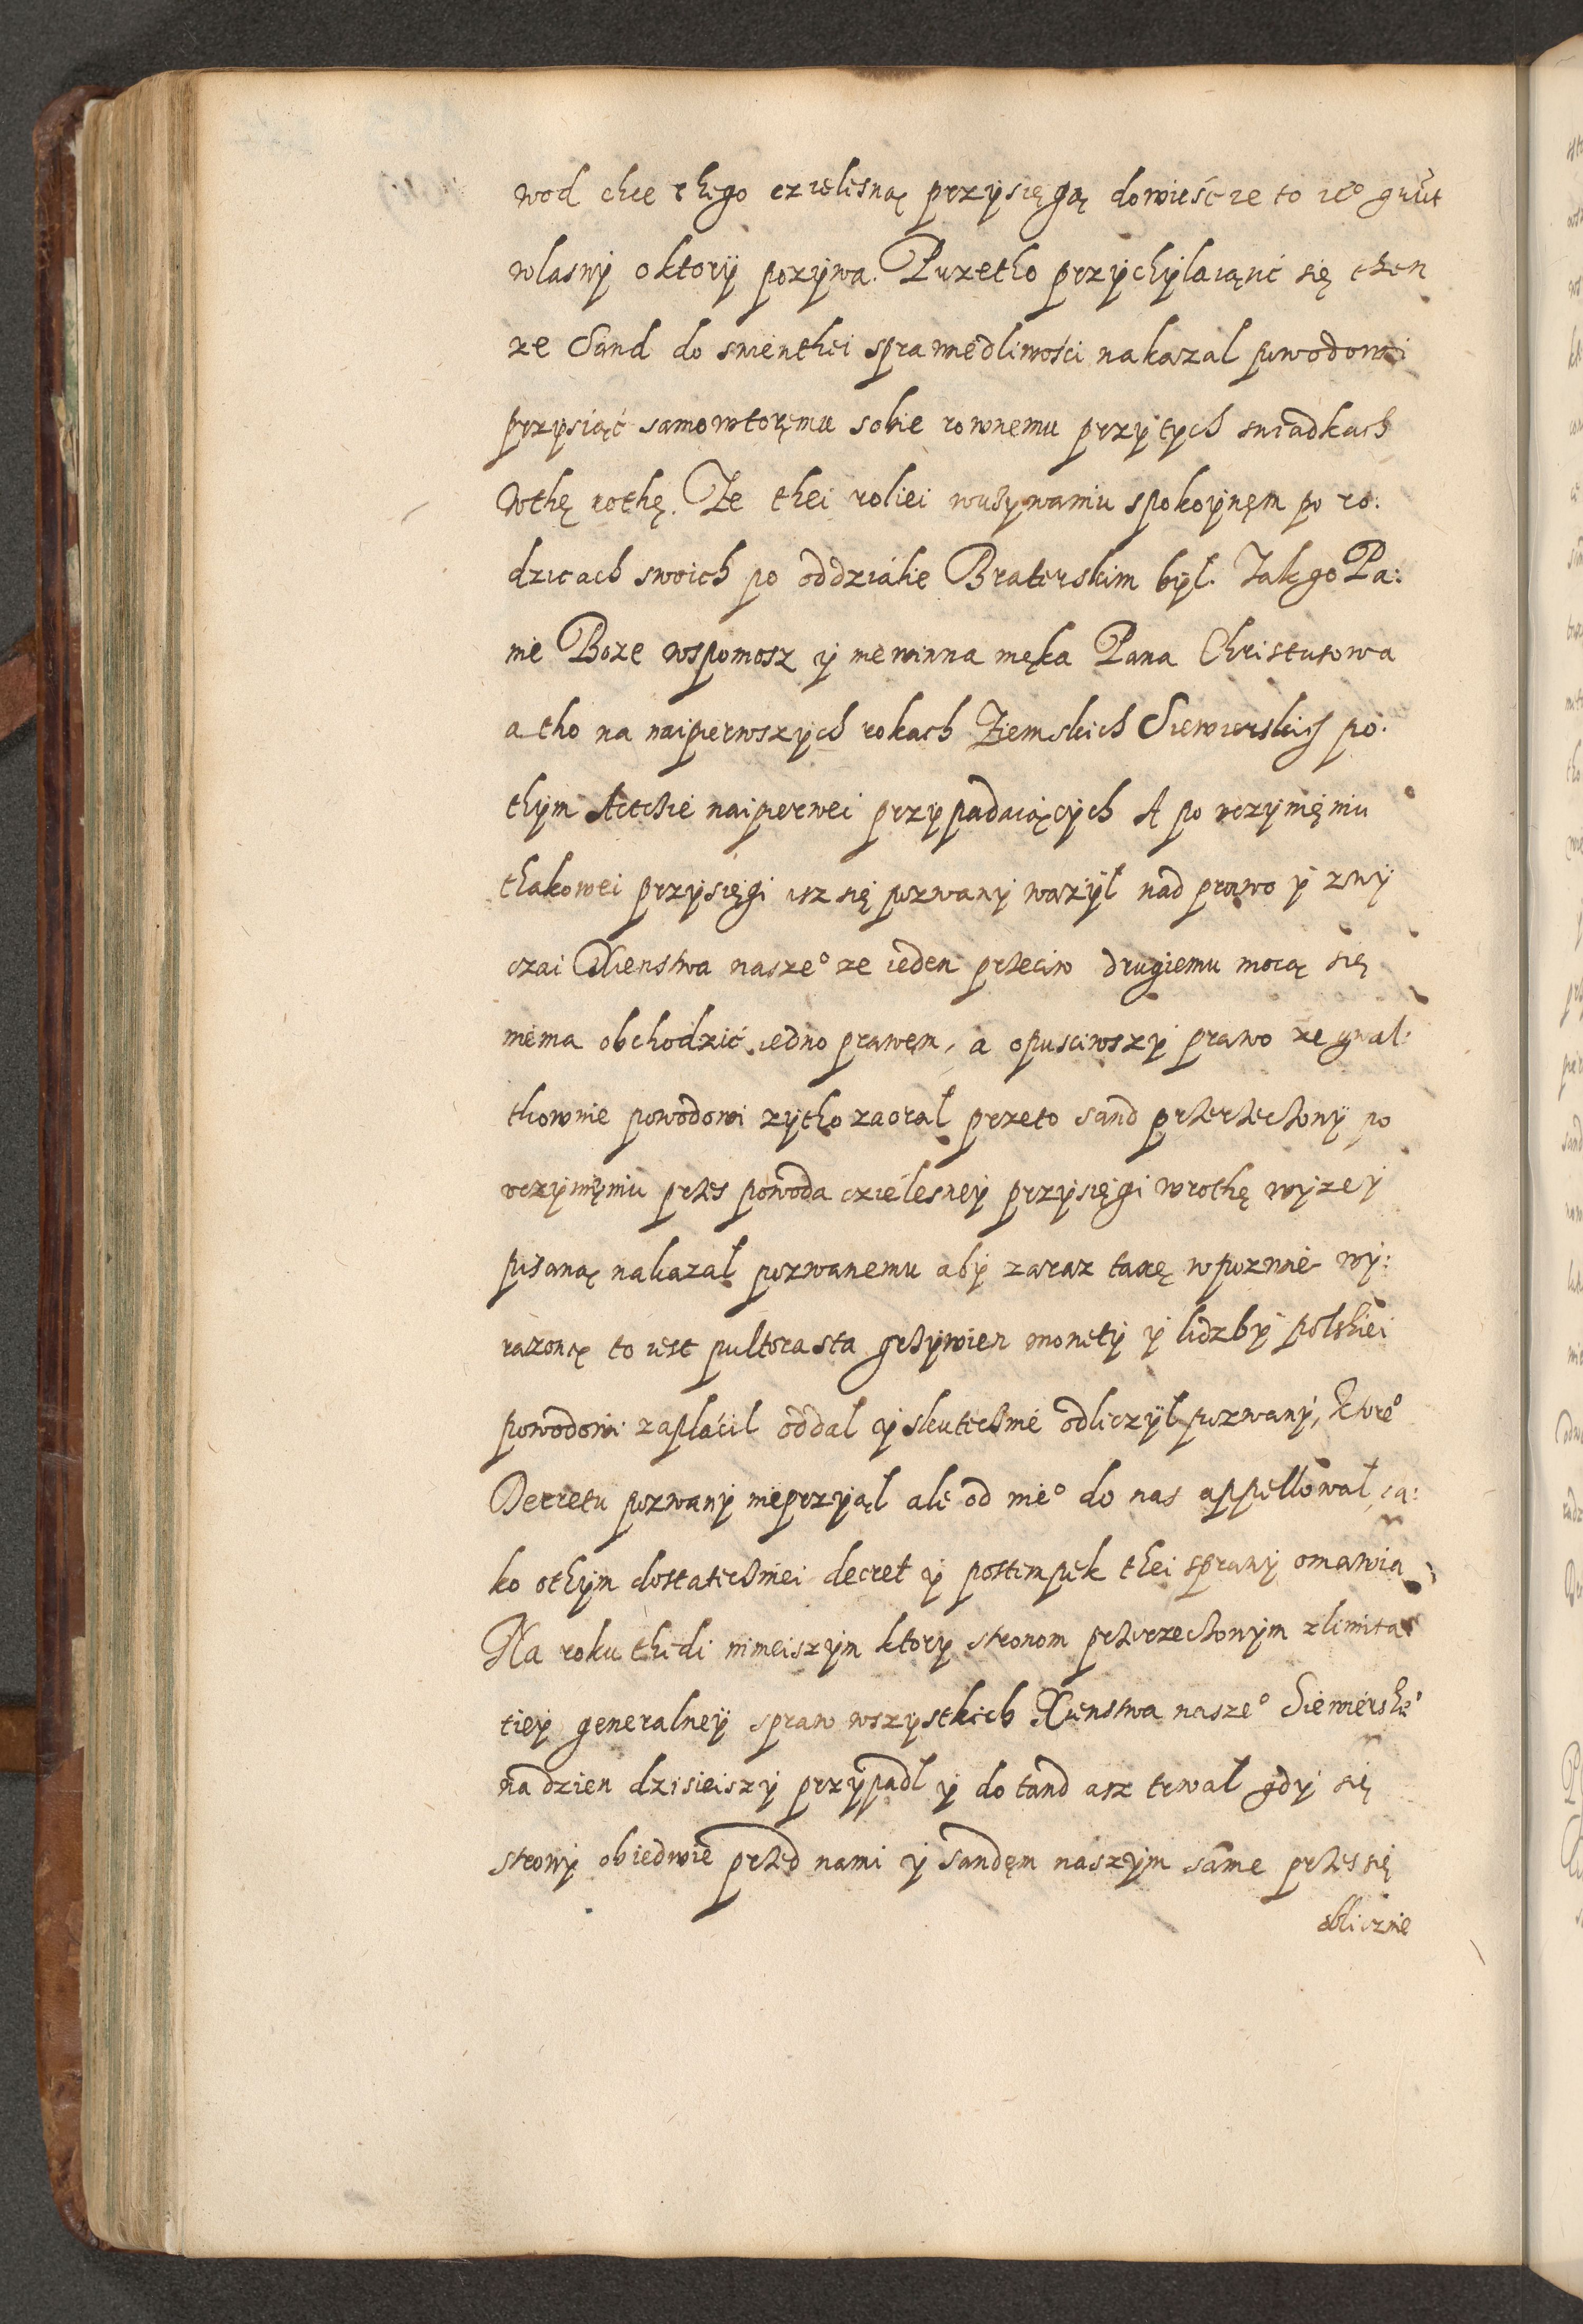 wod chce thego czielesną przysięgą dowieść ze to ie° grūt
wlasny o ktory pozywa. Przetho przychylaiąnć się then
ze Sand do swienthei sprawiedliwości nakazal powodowi
przysiąć samowtoręmu sobie rownemu przy tych swiadkach
w thę rothę. Ze thei roliei wuzywaniu spokoynęm po ro:
dzicach swoich po oddziale Braterskim był. Tak go Pa:
nie Boze wspomosz y niewinna męka Pana Christusowa
a tho na naipierwszych rokach Ziemskich Siewierskich po:
thym Actchie naipierwei przypadaiących A po uczynięniu
thakowei przysięgi isz się pozwany wazył nad prawo y zwy
czai Xienstwa nasze° ze ieden przeciw drugiemu mocą się
niema obchodzić iedno prawem, a opusciwszy prawo ze gwal:
thownie powodowi zytho zaorał przeto sand przerzeczony po
uczynięniu przes powoda czielesney przysięgi w rothę wyzey
pisaną nakazał pozwanemu aby zaraz taxę w pozwie wy:
razoną to iest pultorasta grzywien monety y lidzby polskiei
powodowi zapłacil oddal y skutecznie odliczył pozwany, ktore°
Decretu pozwany nieprzyiął ale od nie° do nas appellowal, ia:
ko o thym dostateczniei decret y postempek thei sprawy omawia
Na roku thedi ninieiszym ktory stronom przerzeczonym z limita
tiey generalney spraw wszystkich Xienstwa nasze° Siewierskie°
na dzien dzisieiszy przypadl y do tand asz trwał gdy się
strony obiedwie przed nami y sandęm naszym same przes się
oblicznie